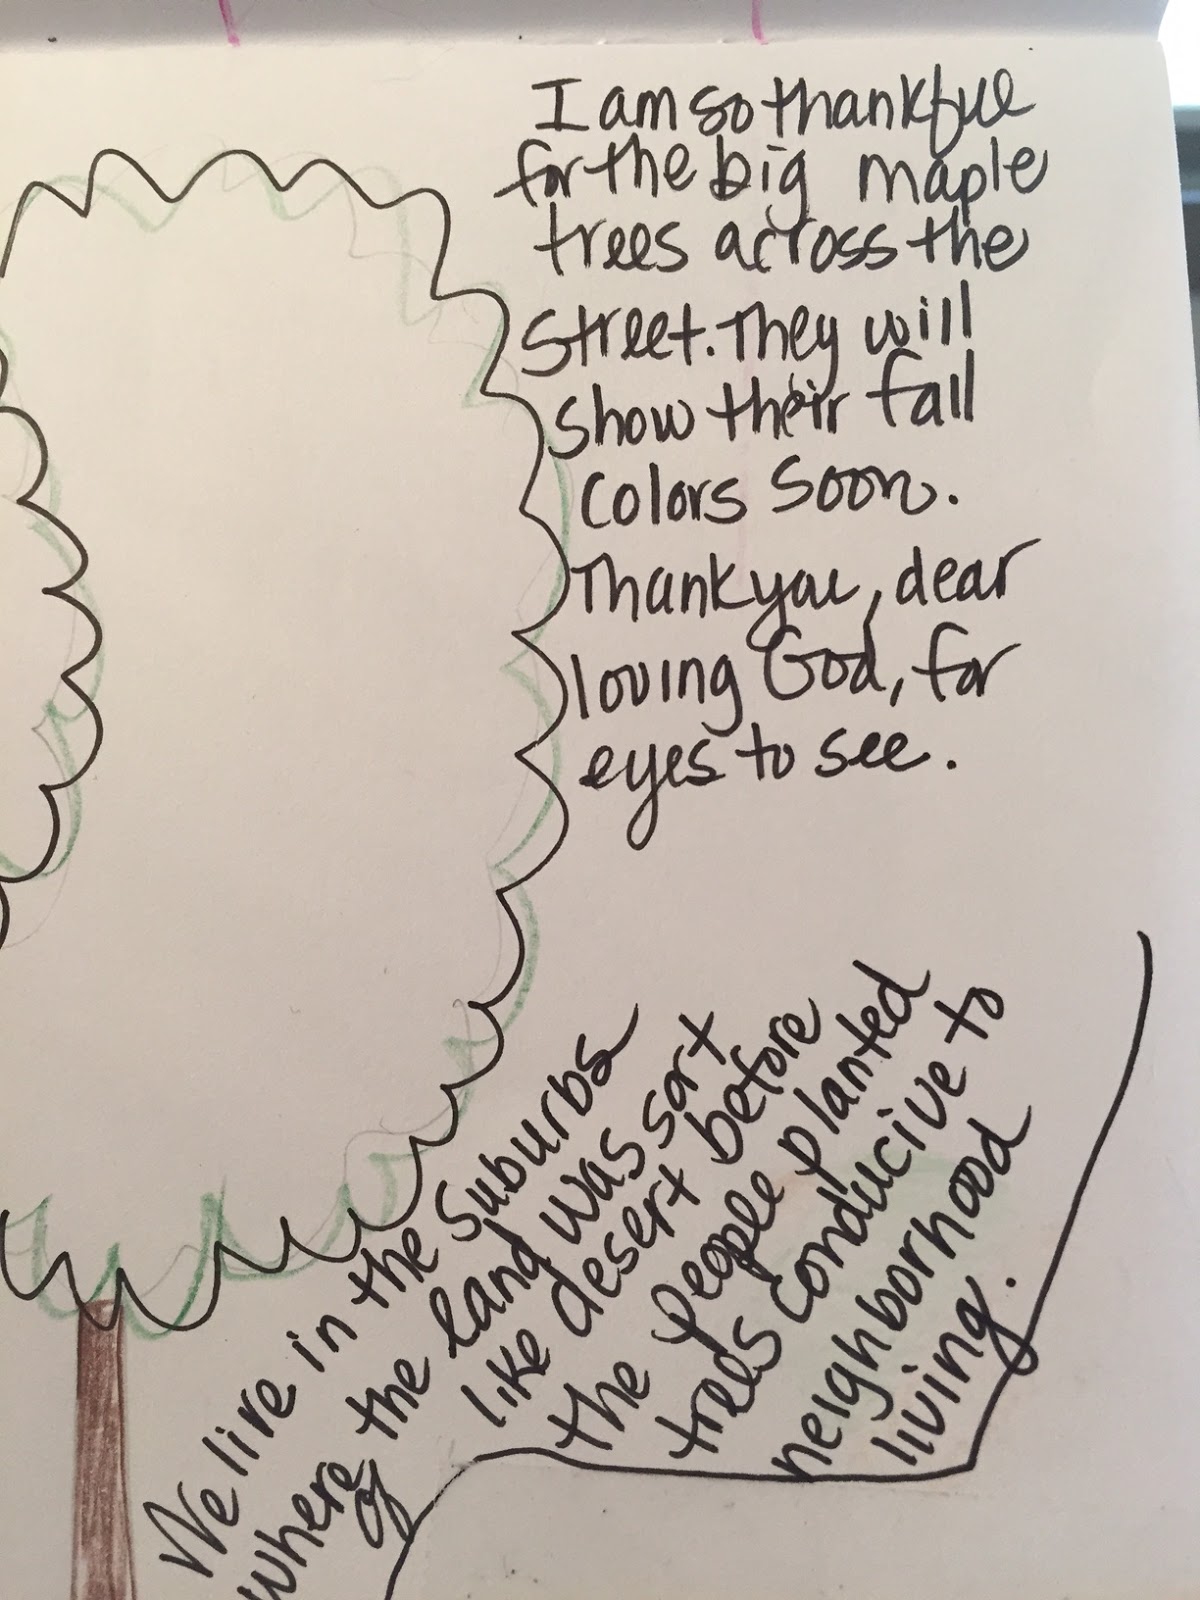 I am so thankful
for the big maple
trees across the
street. They will
show their fall
colors soon.
Thank you, dear
loving God, for
eyes to see.
We live in the suburbs
where the land was sort
of like desert before
the people planted
trees conducive to
neighborhood
living.